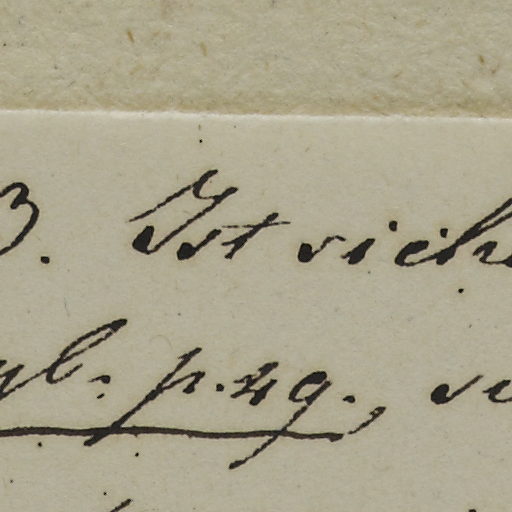 3. Ist sich
gl. p. 49., se